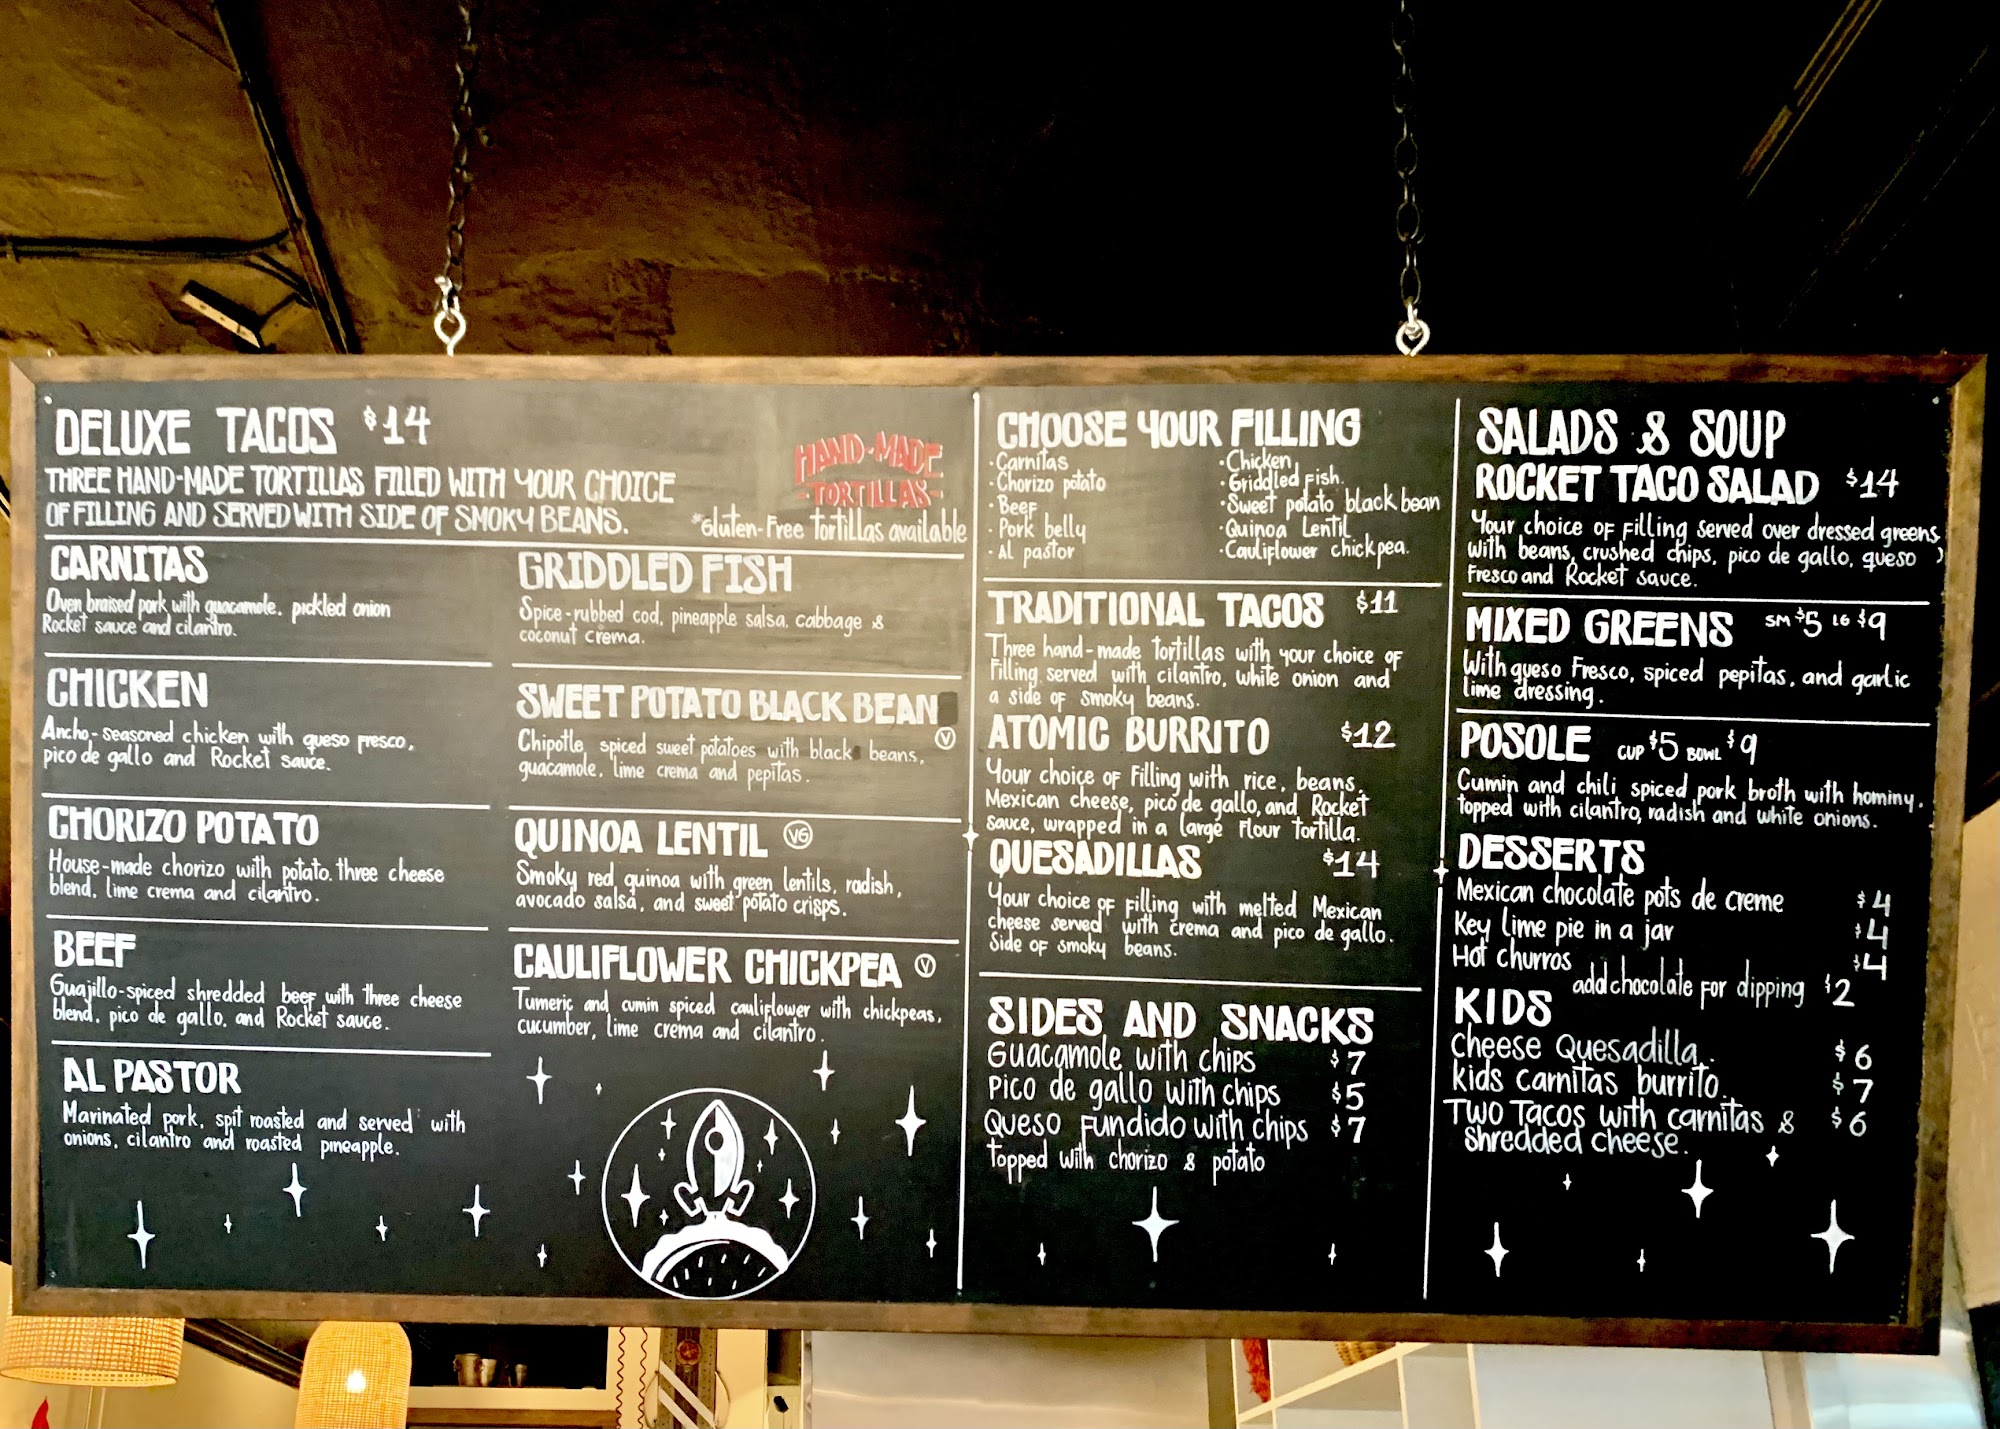 DELUXE TACOS $14
THREE HAND-MADE TORTILLAS FILLED WITH YOUR CHOICE
OF FILLING AND SERVED WITH SIDE OF SMOKY BEANS.
HAND-MADE
-TORTILLAS-
*Gluten-Free tortillas available
CARNITAS
Oven braised pork with guacamole, pickled onion
Rocket sauce and cilantro.
CHICKEN
Ancho-seasoned chicken with queso fresco,
pico de gallo and Rocket sauce.
CHORIZO POTATO
House-made chorizo with potato, three cheese
blend, lime crema and cilantro.
BEEF
Guajillo-spiced shredded beef with three cheese
blend, pico de gallo, and Rocket sauce.
AL PASTOR
Marinated pork, spit roasted and served with
onions, cilantro and roasted pineapple.
GRIDDLED FISH
Spice-rubbed cod, pineapple salsa, cabbage &
coconut crema.
SWEET POTATO BLACK BEAN
Chipotle spiced sweet potatoes with black beans, V
guacamole, lime crema and pepitas.
QUINOA LENTIL VG
Smoky red quinoa with green lentils, radish,
avocado salsa, and sweet potato crisps.
CAULIFLOWER CHICKPEA V
Tumeric and cumin spiced cauliflower with chickpeas,
cucumber, lime crema and cilantro.
CHOOSE YOUR FILLING
·Carnitas
·Chorizo potato
·Beef
·Pork belly
·Al pastor
·Chicken
·Griddled Fish.
·Sweet potato black bean
·Quinoa Lentil
·Cauliflower chickpea.
TRADITIONAL TACOS $11
Three hand-made tortillas with your choice of
Filling served with cilantro, white onion and
a side of smoky beans.
ATOMIC BURRITO $12
Your choice of Filling with rice, beans,
Mexican cheese, pico de gallo, and Rocket
sauce, wrapped in a large Flour tortilla.
QUESADILLAS $14
Your choice of filling with melted Mexican
cheese served with crema and pico de gallo.
Side of smoky beans.
SIDES AND SNACKS
Guacamole with chips $7
Pico de gallo with chips $5
Queso Fundido with chips $7
topped with chorizo & potato
SALADS & SOUP
ROCKET TACO SALAD $14
Your choice of Filling served over dressed greens
with beans, crushed chips, pico de gallo, queso
Fresco and Rocket sauce.
MIXED GREENS SM $5 LG $9
With queso Fresco, spiced pepitas, and garlic
lime dressing.
POSOLE CUP $5 BOWL $9
Cumin and chili spiced pork broth with hominy.
topped with cilantro, radish and white onions.
DESSERTS
Mexican chocolate pots de creme $4
Key lime pie in a jar $4
Hot churros $4
add chocolate for dipping $2
KIDS
Cheese Quesadilla. $6
kids carnitas burrito. $7
Two Tacos with carnitas & $6
Shredded cheese.